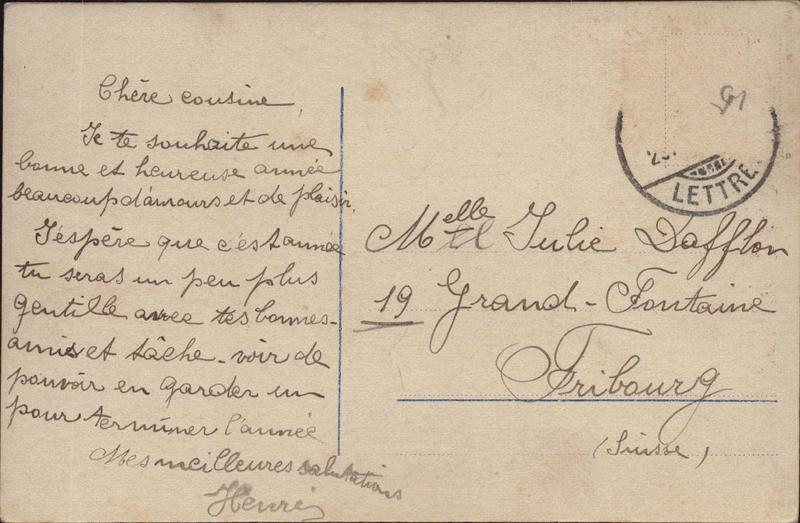 Chère cousine,
Je te souhaite une
bonne et heureuse année
beaucoup d'amours et de plaisir.
J'éspère que c'est année
tu seras un peu plus
gentille avec tes bonnes-
amies et tâche-voir de
pouvoir en garder un
pour terminer l'année
Mes meilleures salutations
Henri
LETTRE.
Melle Julie Dafflon
19 Grand-Fontaine
Fribourg
(Suisse)